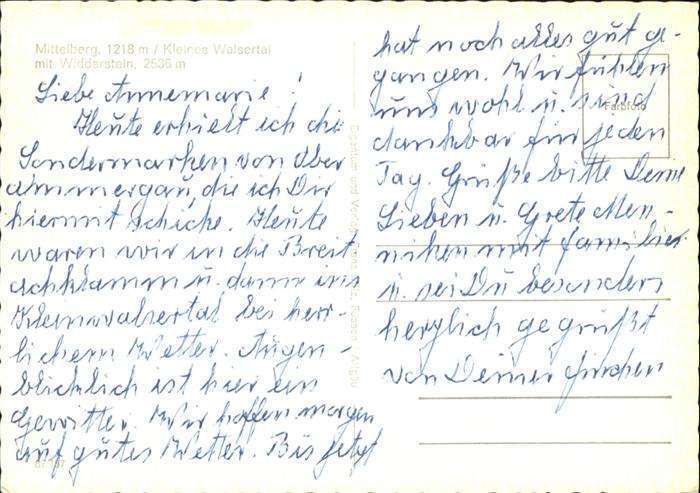 Mittelberg, 1218 m / Kleines Walsertal
mit Widderstein, 2536 m
Liebe Annemarie!
Heute erhielt ich die
Sondermarken von Ober
ammergau, die ich Dir
hiermit schicke. Heute
waren wir in die Breit
achklamm u. dann ins
Kleinwalsertal bei herr-
lichem Wetter. Augen-
blicklich ist hier ein
Gewitter. Wir hoffen morgen
auf gutes Wetter. Bis jetzt
hat noch alles gut ge-
gangen. Wir fühlen
uns wohl u. sind
dankbar für jeden
Tag. Grüße bitte Deine
Lieben u. Grete Men-
niken mit Familie
u. sei Du besonders
herzlich gegrüßt
von Deiner
Farbfoto